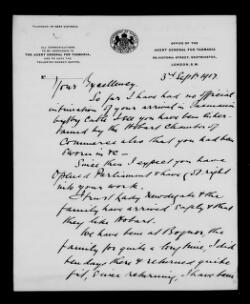 TELEGRAMS TO "DEEP, VICTORIA"
ALL COMMUNICATIONS
TO BE ADDRESSED TO
THE AGENT GENERAL FOR TASMANIA,
AND TO HAVE THE
FOLLOWING NUMBER QUOTED.
OFFICE OF THE
AGENT GENERAL FOR TASMANIA
56, VICTORIA STREET, WESTMINSTER,
LONDON, S.W.
3rd Septr 1917
Your Excellency.
So far I have had no official
intimation of your arrival in Tasmania
by Cable I see you have been
tained by the Hobart Chamber of
Commerce also that you had been
sworn in &c –
Since then I expect you have
opened Parliament & have got right
into your work.
I trust Lady Newdegate & the
family have arrived safely & that
they like Hobart.
We have been at Bognor, the
family for quite a long time, I did
ten days there & returned quite
fit, Since returning, I have been